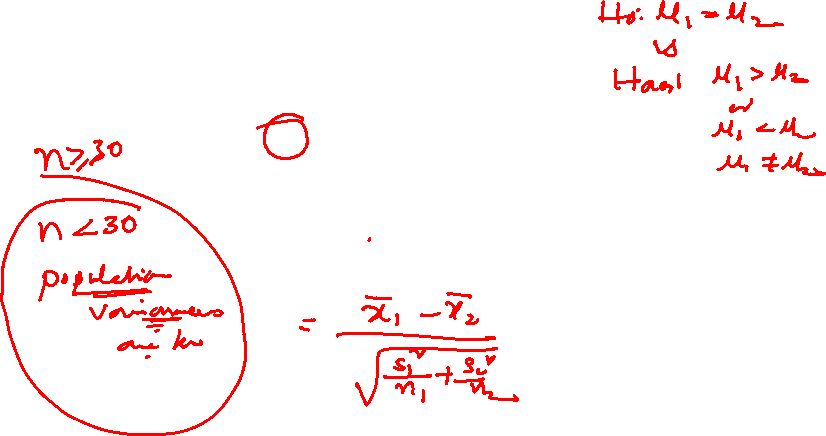 H₀: μ₁ = μ₂
vs
μ₁ > μ₂
or
μ₁ < μ₂
μ₁ ≠ μ₂
n ≥ 30
n < 30
population
variances
are kn
= (x̄₁ - x̄₂) / √(s₁²/n₁ + s₂²/n₂)